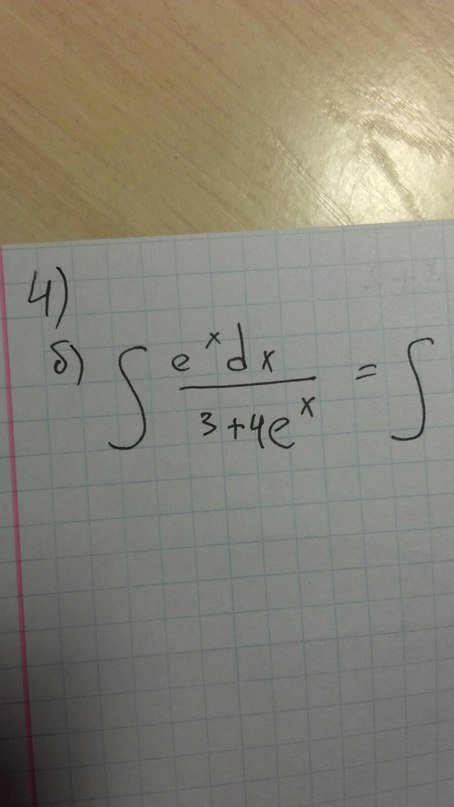 4)
б) ∫ e^x dx / 3+4e^x = ∫